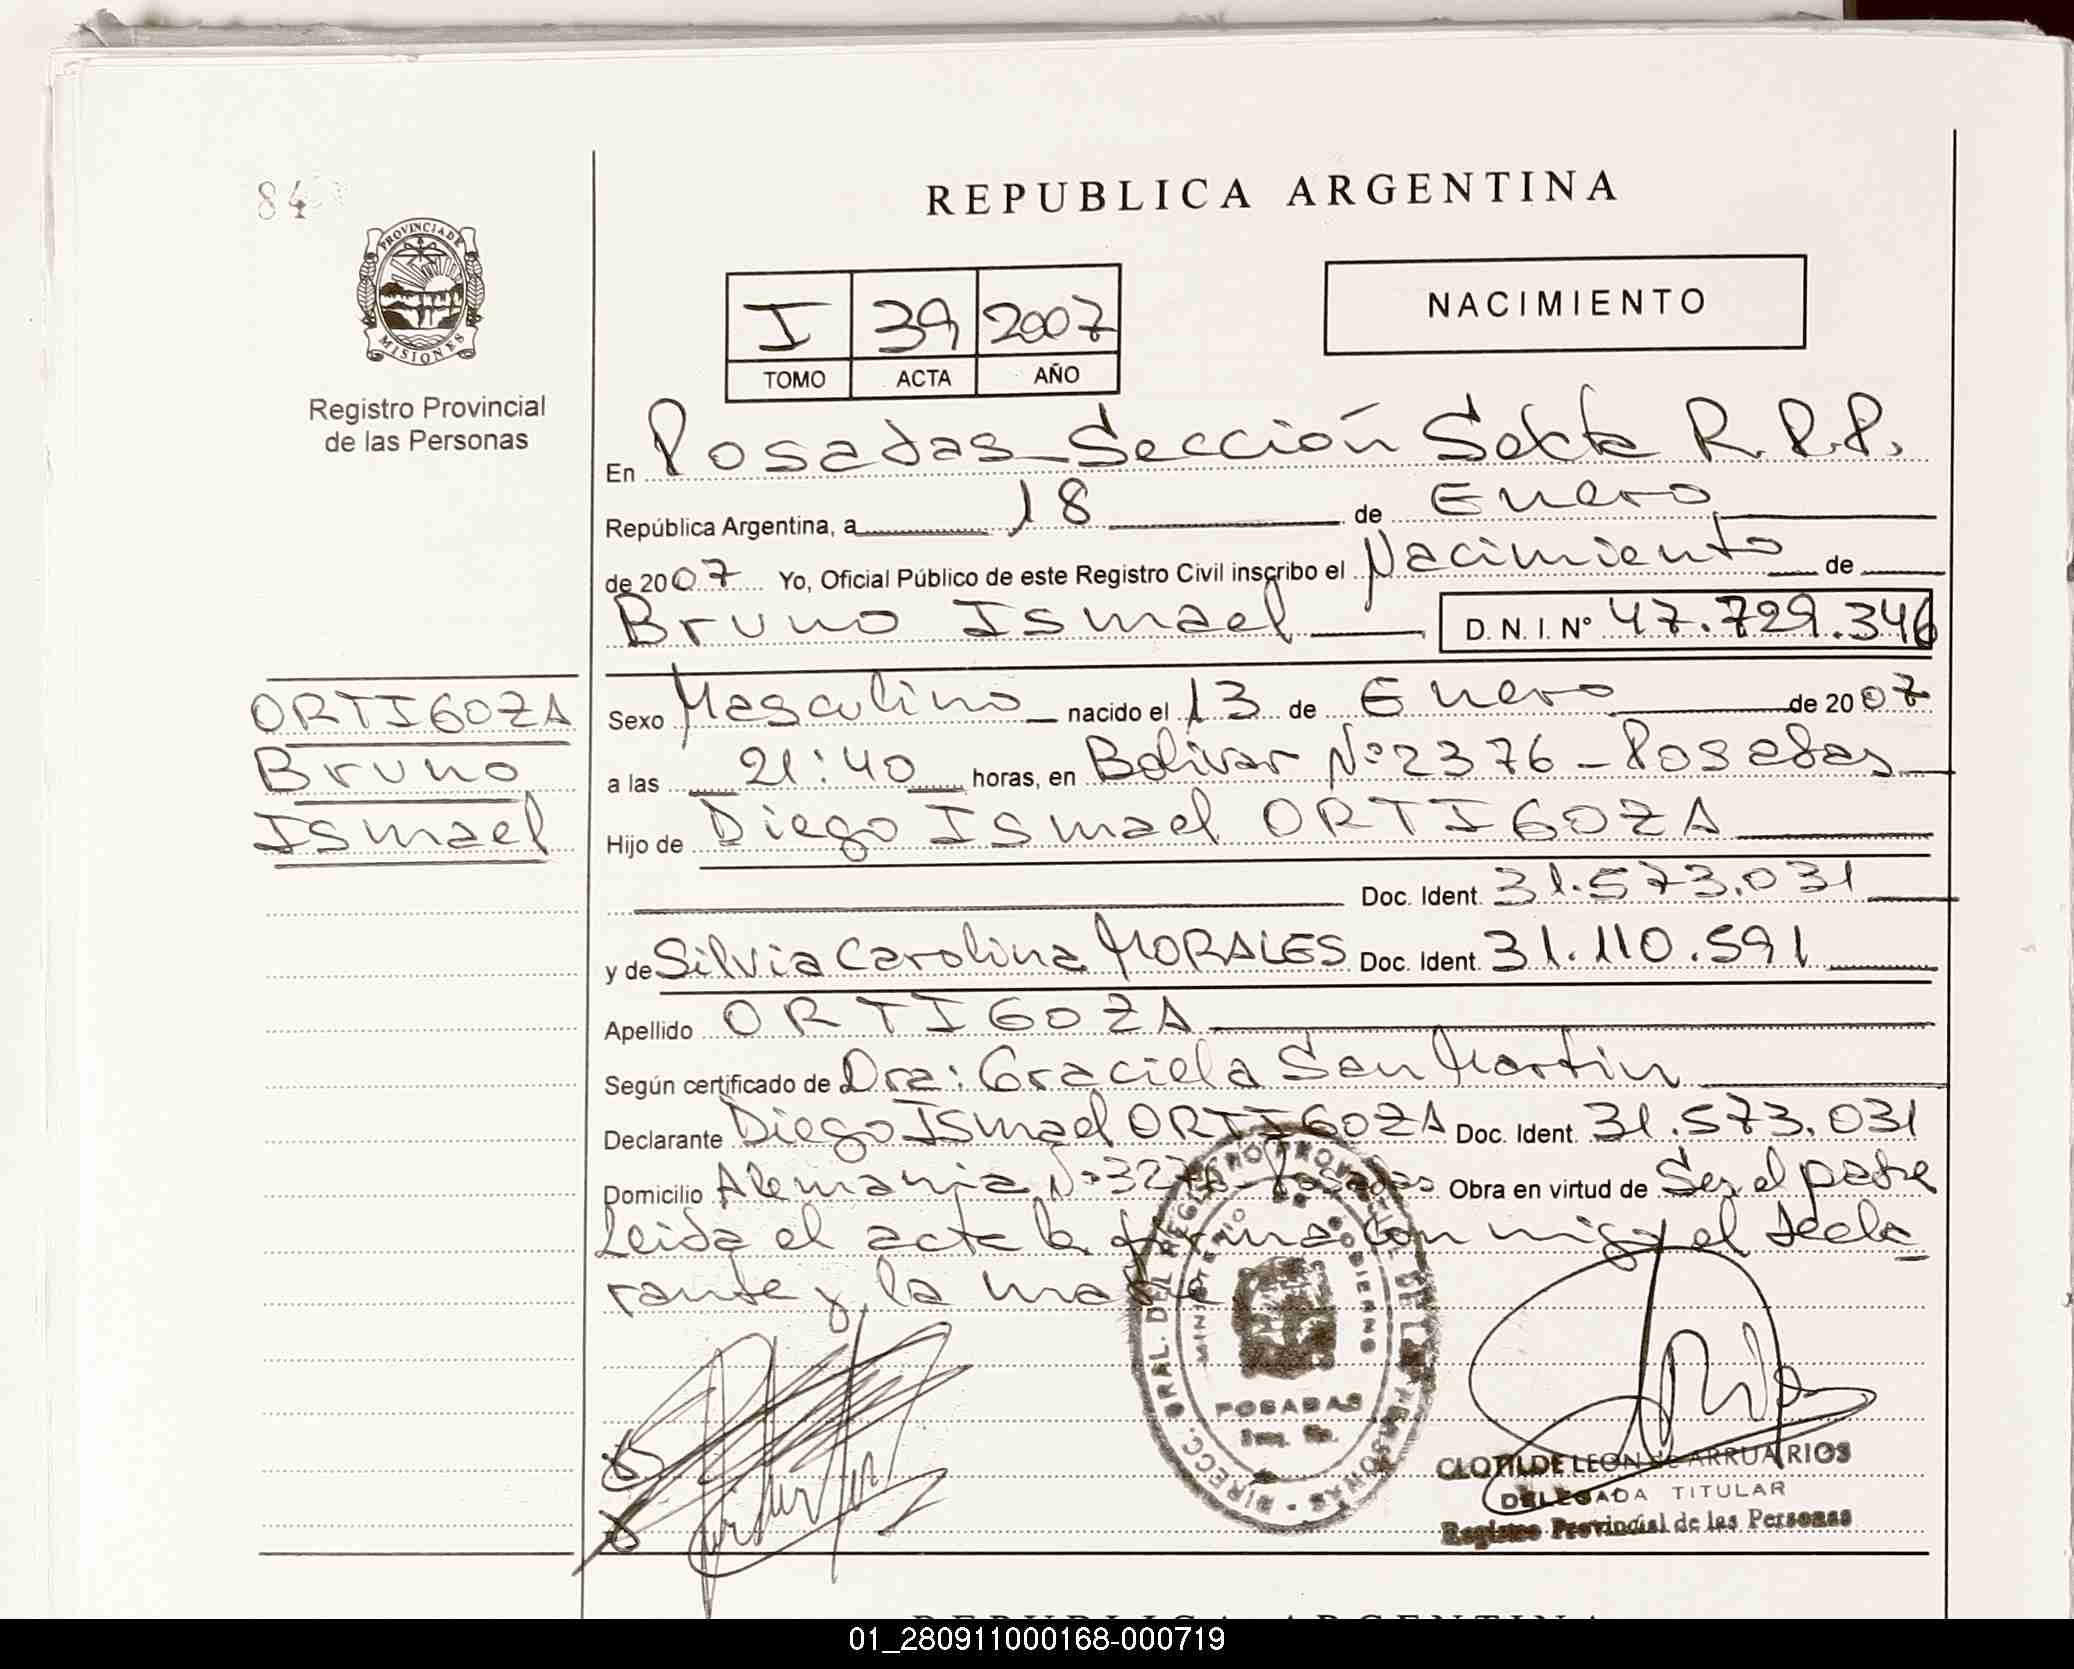 84
REPUBLICA ARGENTINA
PROVINCIA DE
MISIONES
Registro Provincial
de las Personas
I 39 2007
TOMO ACTA AÑO
NACIMIENTO
En Posadas - Sección Sexta R.P.P.
República Argentina, a 18 de Enero
de 2007 Yo, Oficial Público de este Registro Civil inscribo el Nacimiento de
Bruno Ismael D. N. I. Nº 47.729.346
ORTIGOZA
Bruno
Ismael
Sexo Masculino nacido el 13 de Enero de 2007
a las 21:40 horas, en Bolivar Nº 2376 - Posadas
Hijo de Diego Ismael ORTIGOZA
Doc. Ident. 31.573.031
y de Silvia Carolina MORALES Doc. Ident. 31.110.591
Apellido ORTIGOZA
Según certificado de Dra: Graciela San Martin
Declarante Diego Ismael ORTIGOZA Doc. Ident. 31.573.031
Domicilio Alemania Nº Posadas Obra en virtud de Ser el padre
Leida el acta la firma con migo el decla
rante y la madre
DIRECC. GRAL. DEL REGISTRO PROVINCIAL DE LAS PERSONAS
MINISTERIO DE GOBIERNO
POSADAS
CLOTILDE LEON de ARRUA RIOS
DELEGADA TITULAR
Registro Provincial de las Personas
REPUBLICA ARGENTINA
01_280911000168-000719